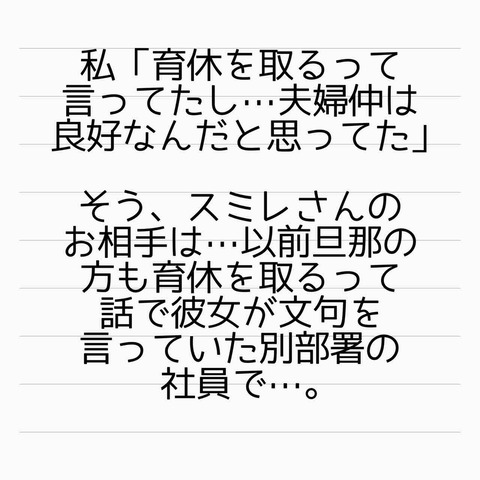 私「育休を取るって
言ってたし…夫婦仲は
良好なんだと思ってた」
そう、スミレさんの
お相手は…以前旦那の
方も育休を取るって
話で彼女が文句を
言っていた別部署の
社員で…。